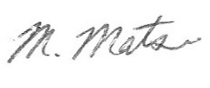 M. Mats